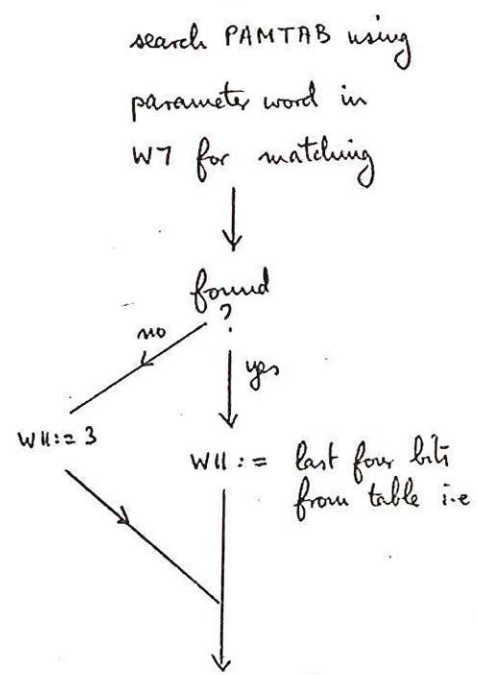 search PAMTAB using
parameter word in
W7 for matching
found
?
no
yes
W11:= 3
W11:= last four bits
from table i.e